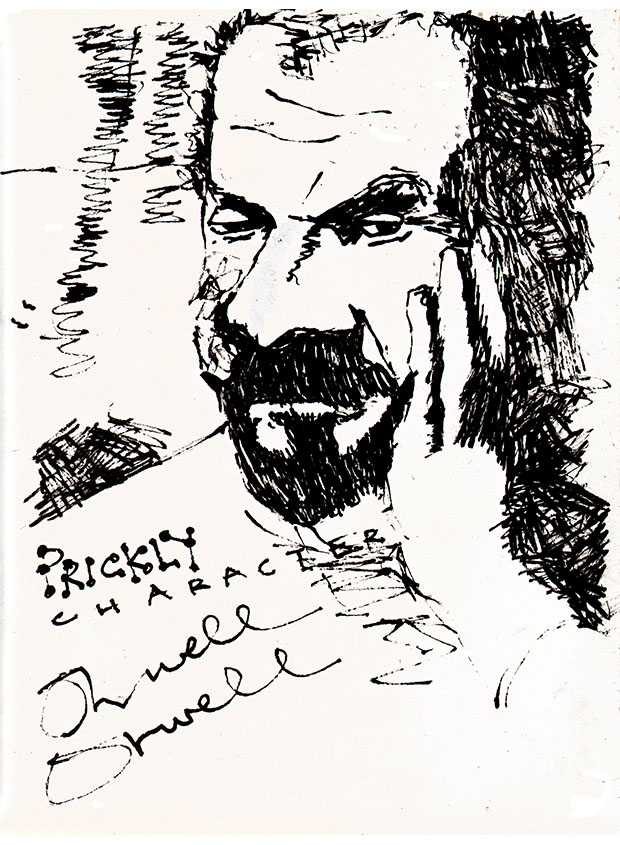 PRICKLY
CHARACTER
Orwell
Orwell